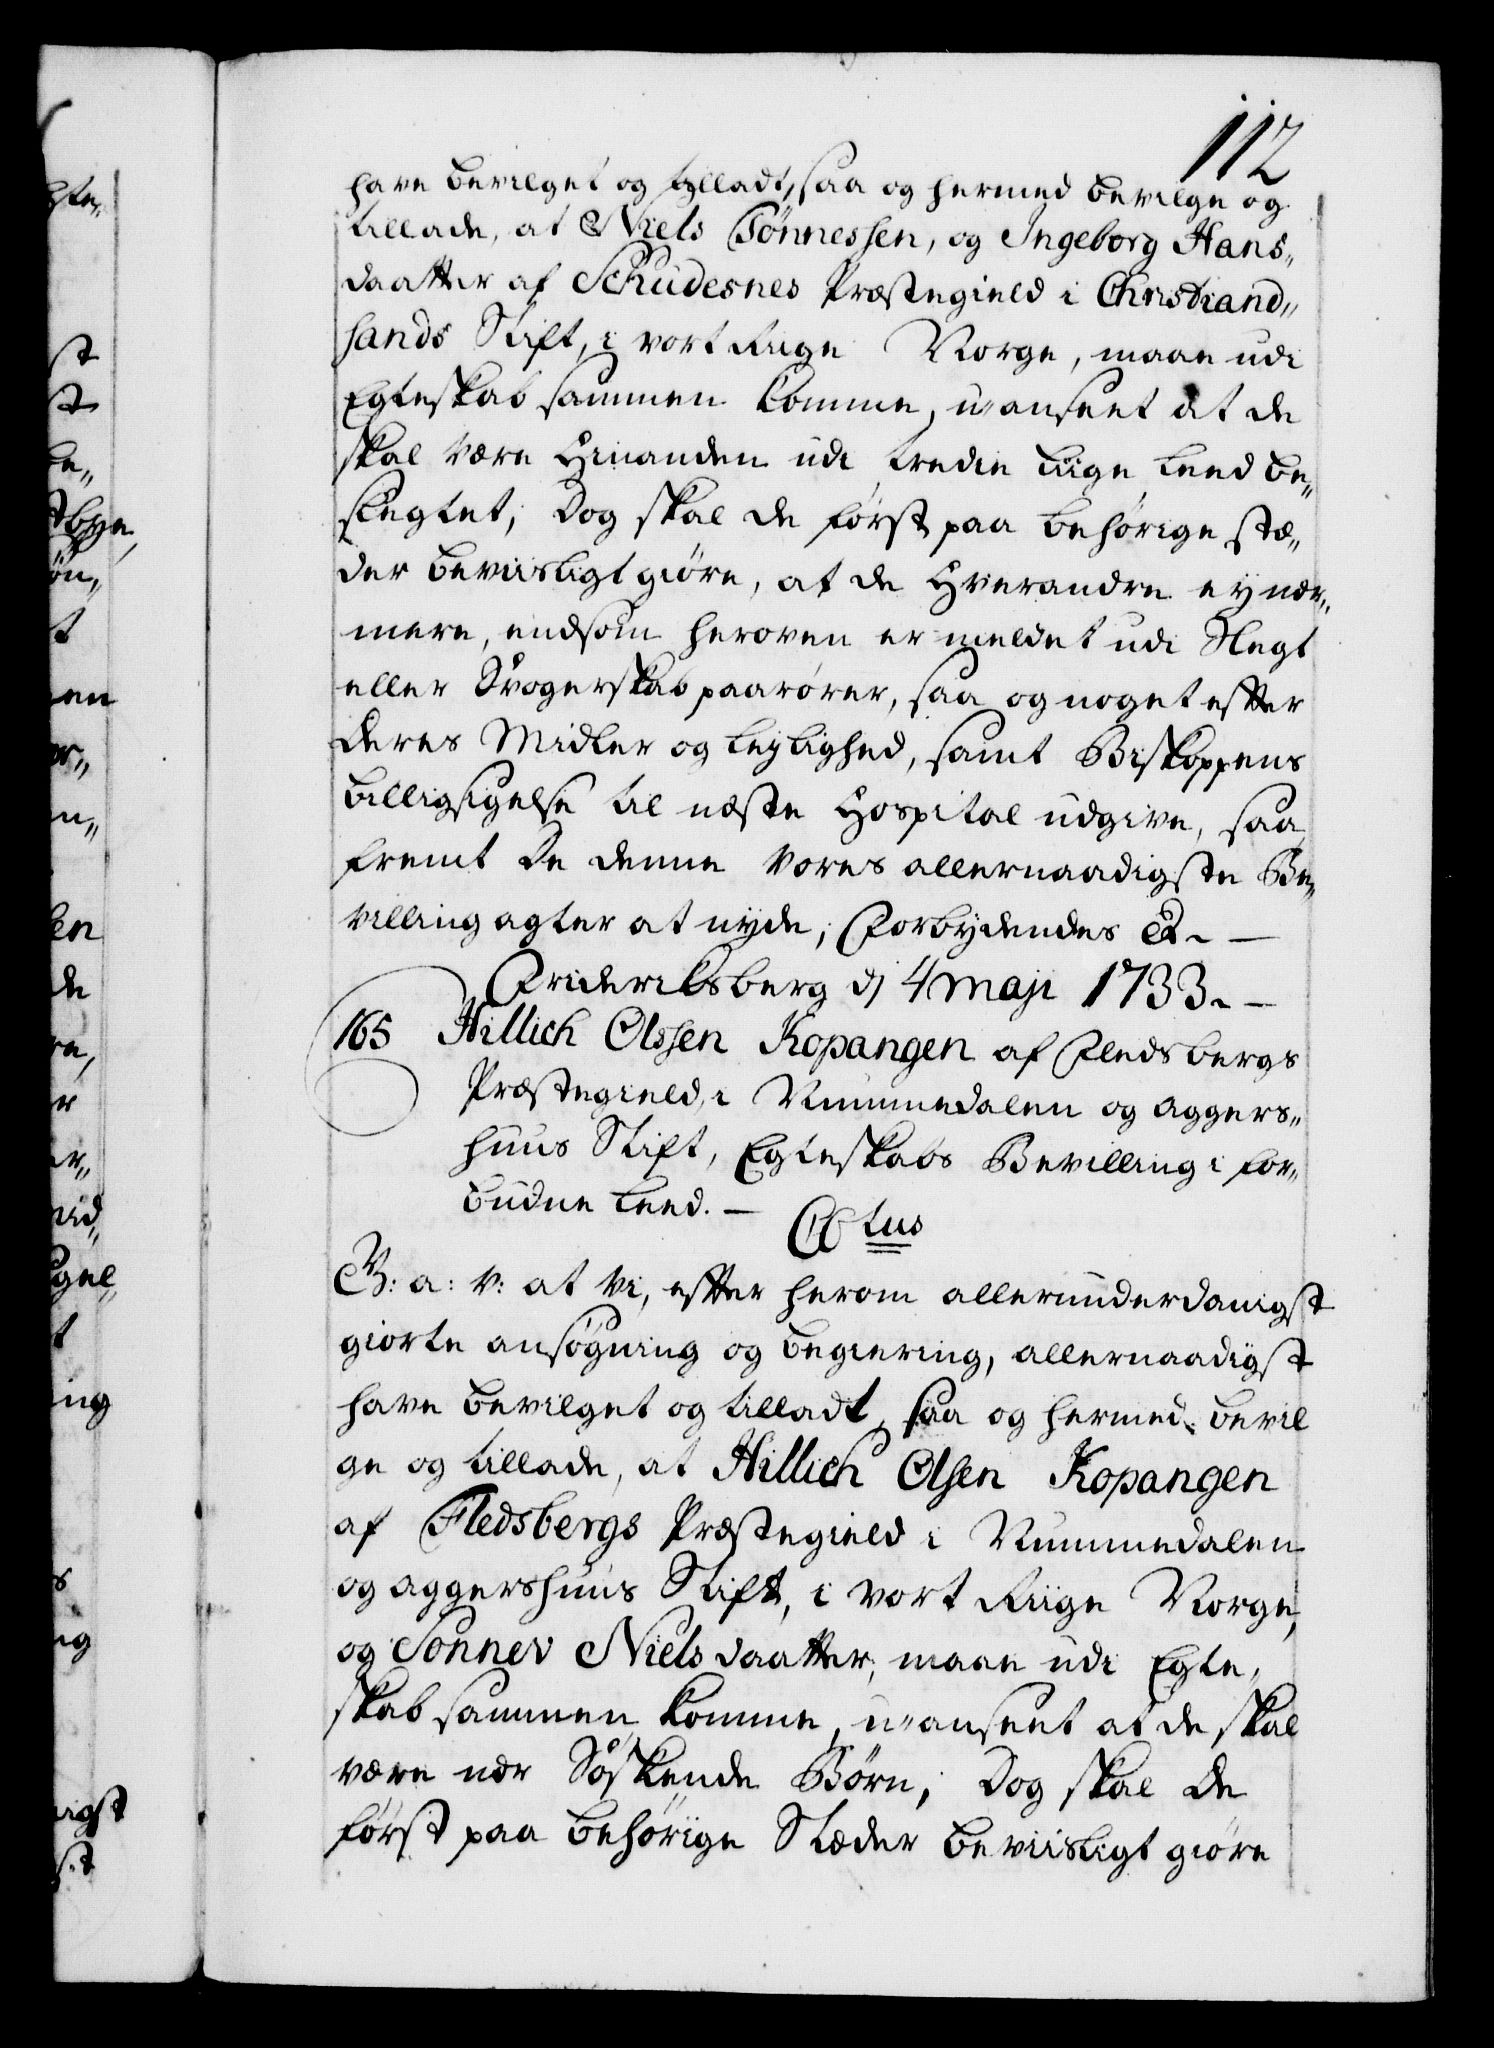 112
have bevilget og tilladt, saa og hermed bevilge og
tillade, at Niels Tönnessen, og Ingeborg Hans„
daatter af Schudesnes Præstegield i Christiand„
sands Stift, i vort Riige Norge, maae udi
Egteskab sammen komme, u-anseet at de
skal være hinanden udi tredie liige Leed be„
slegtet; Dog skal de först paa behörige stæ„
der beviisligt giöre, at de hverandre ey nær„
mere, end som heroven er meldet udi Slegt
eller Svogerskab paarörer, saa og noget effter
deres Midler og Leylighed, samt Biskoppens
billigsigelse til næste Hospital udgive, saa
fremt de denne vores allernaadigste Be„
villing agter at nyde, Forbydendes &. —
Friderichsberg dj 4 Maji 1733. —
165 Hillich Olssen Kopangen af Fledsbergs
Præstegield, i Nummedalen og Aggers„
huus Stift, Egteskabs Bevilling i for„
budne Leed. —
C 6tus
G: a: v: at Vi, effter herom allerunderdanigst
giorte ansögning og begiering, allernaadigst
have bevilget og tilladt, saa og hermed bevil
ge og tillade, at Hillich Olsen Kopangen
af Fledsbergs Præstegield i Nummedalen
og Aggershuus Stift, i vort Riige Norge,
og Sönnev Niels daatter, maae udi Egte„
skab sammen komme, u-anseet at de skal
være nær Södskende Börn; Dog skal de
först paa behöriige Stæder beviisligt giöre